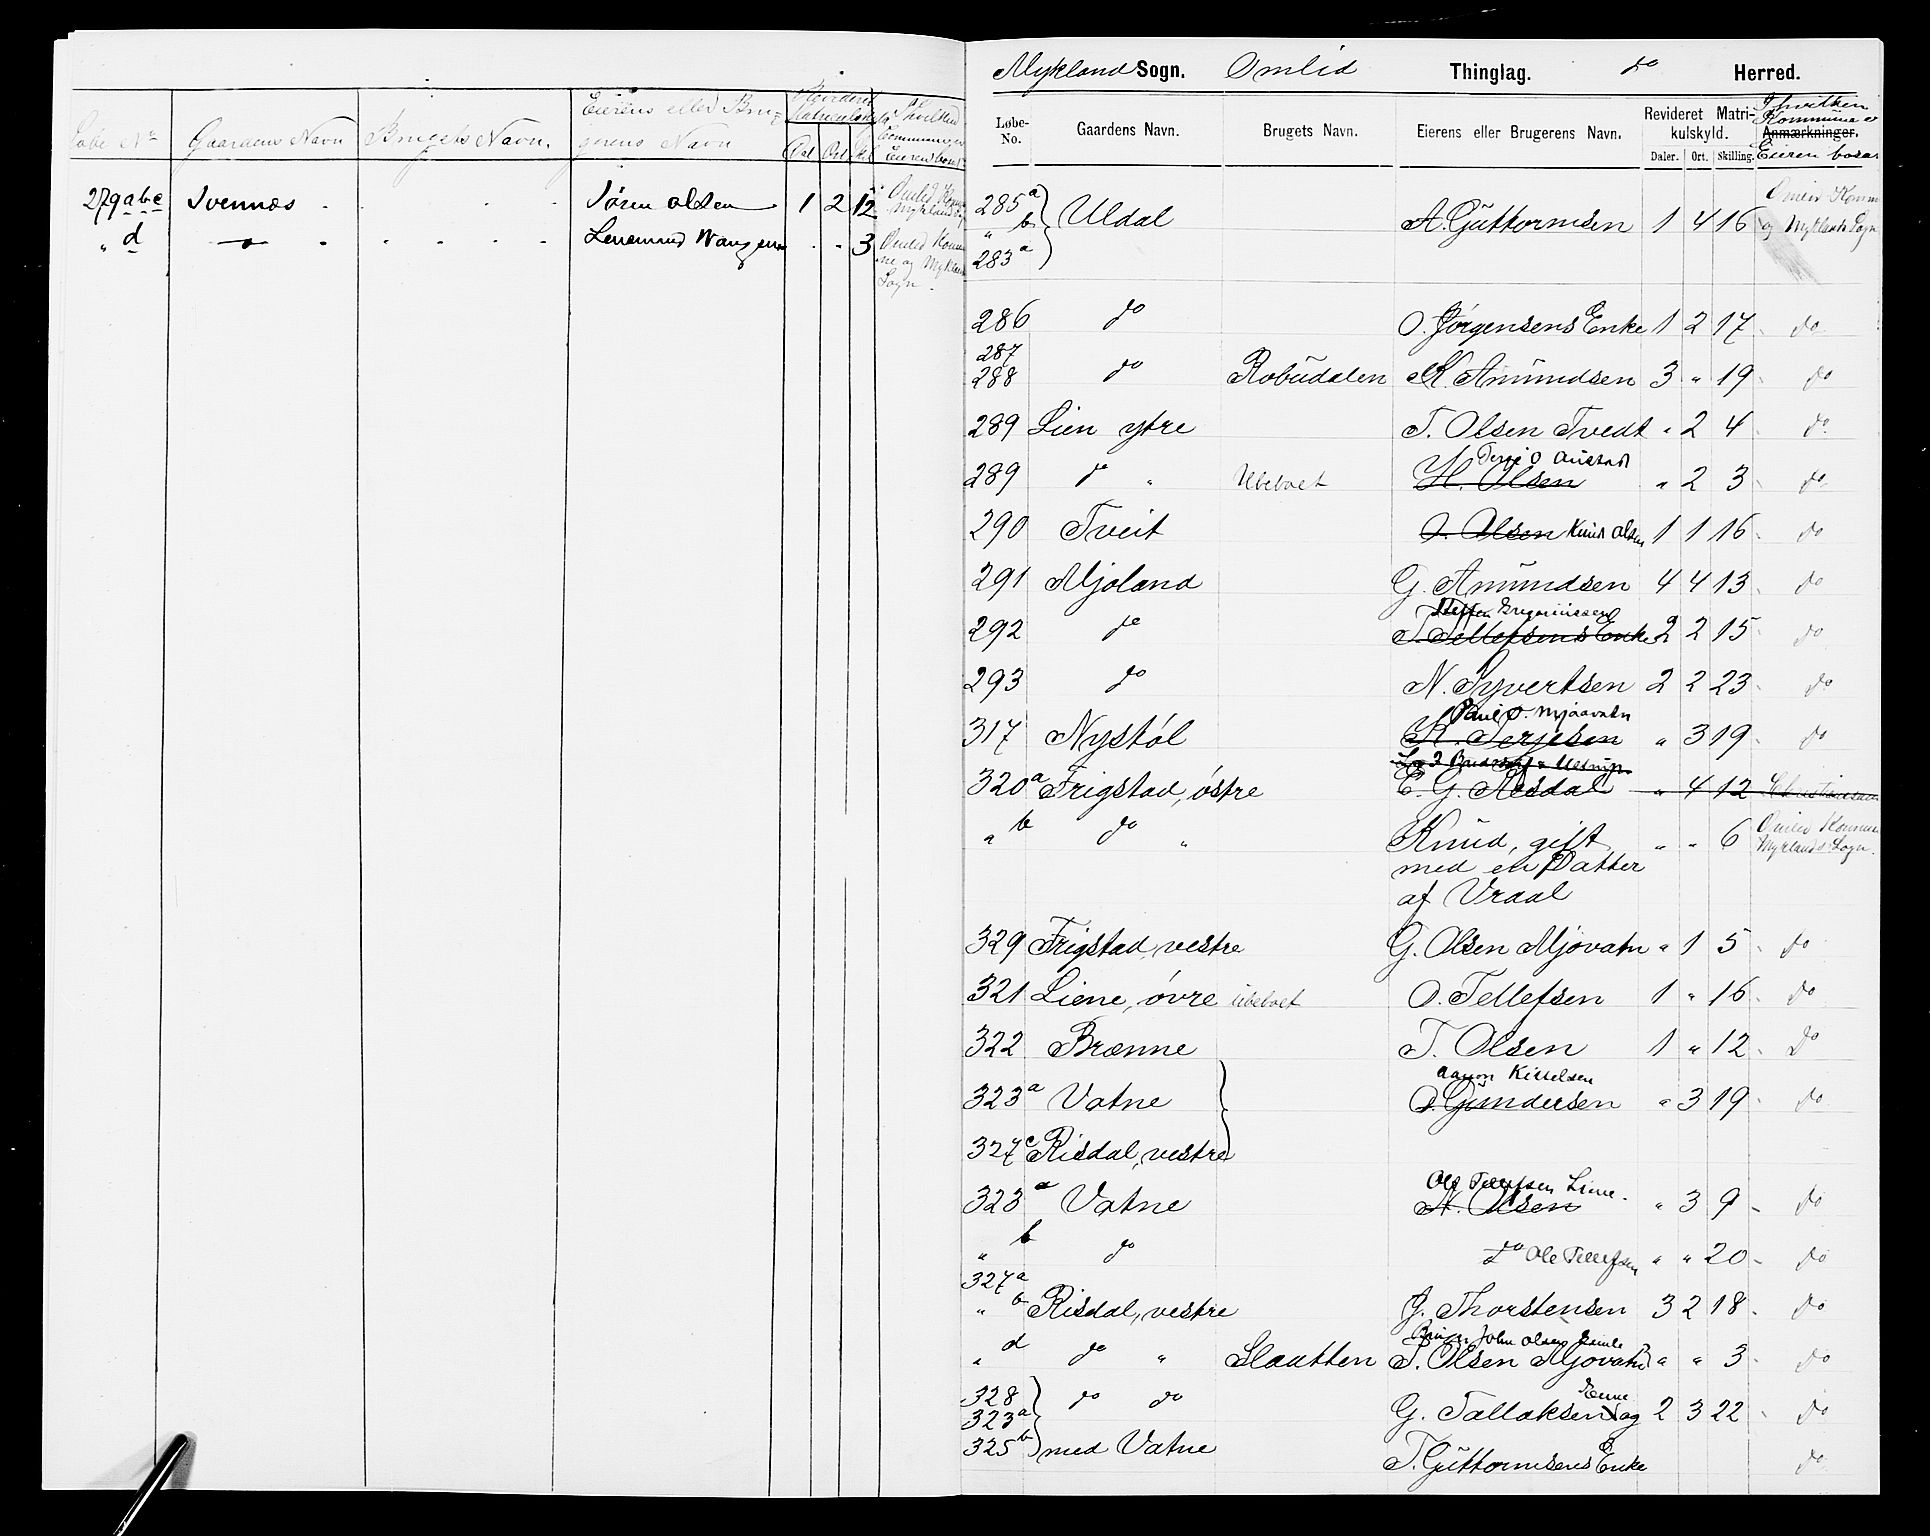 Løbe No Gaardens Navn Brugets Navn. Eierens eller Bru-
gerens Navn Dal Ort
279 a b c Svennæs Søren Olsen 1 2 12 Omlid
" d Lenemand 3 Omlid
ne og
Sogn.
Mykland Sogn. Omlid Thinglag. do Herred.
Løbe-No. Gaardens Navn. Brugets Navn. Eierens eller Brugerens Navn. Revideret Matri-kulskyld. Daler. Ort. Skilling. I hvilken Kommune er Anmærkninger. Eieren bosat
285 a
" b Uldal A. Guttormsen 1 4 16 Omlid Komm
og Myklands Sogn
283 a
286 do O. Jørgensens Enke 1 2 17 do
287
288 do Robudalen K. Amundsen 3 " 19 do
289 Lien ytre T. Olsen Tvedt " 2 4 do
Terje O Austad
289 do " Ubeboet H. Olsen " 2 3 do
290 Tveit O. Olsen Knud Olsen 1 1 16 do
291 Mjoland G. Amundsen 4 4 13 do
Steffen
292 do T. Tellefsens Enke 2 2 15 do
293 do N. Syvertsen 2 2 23 do
Paul O. Mjaavatn
317 Nystøl K. Terjesen " 3 19 do
320 a Frigstad, østre E. G. Aasdal " 4 12
" b do " Knud, gift " " 6 Omlid Kommun
Myklands Sogn.
med en Datter
af Vraal
329 Frigstad, vestre G. Olsen Mjovatn " 1 5 do
321 Liene, øvre ubeboet O. Tellefsen 1 " 16 do
322 Brænne T. Olsen 1 " 12 Do
Aanon Kittelsen
323 a Vatne O. Gundersen " 3 19 do
327 c Risdal, vestre
Ole Tellefsen Liene.
323 a Vatne A. Olsen " 3 9 do
" b do do Ole Tellefsen " " 20 do
327 a
" b Risdal, vestre G. Thorstensen 3 2 18 do
John Olsen
" d do " Slautten T. Olsen Mjovatn " " 3 do
328 do do
323 a G. Tallaksen og 2 3 22 do
325 b med Vatne
T. Guttormsens Enke do